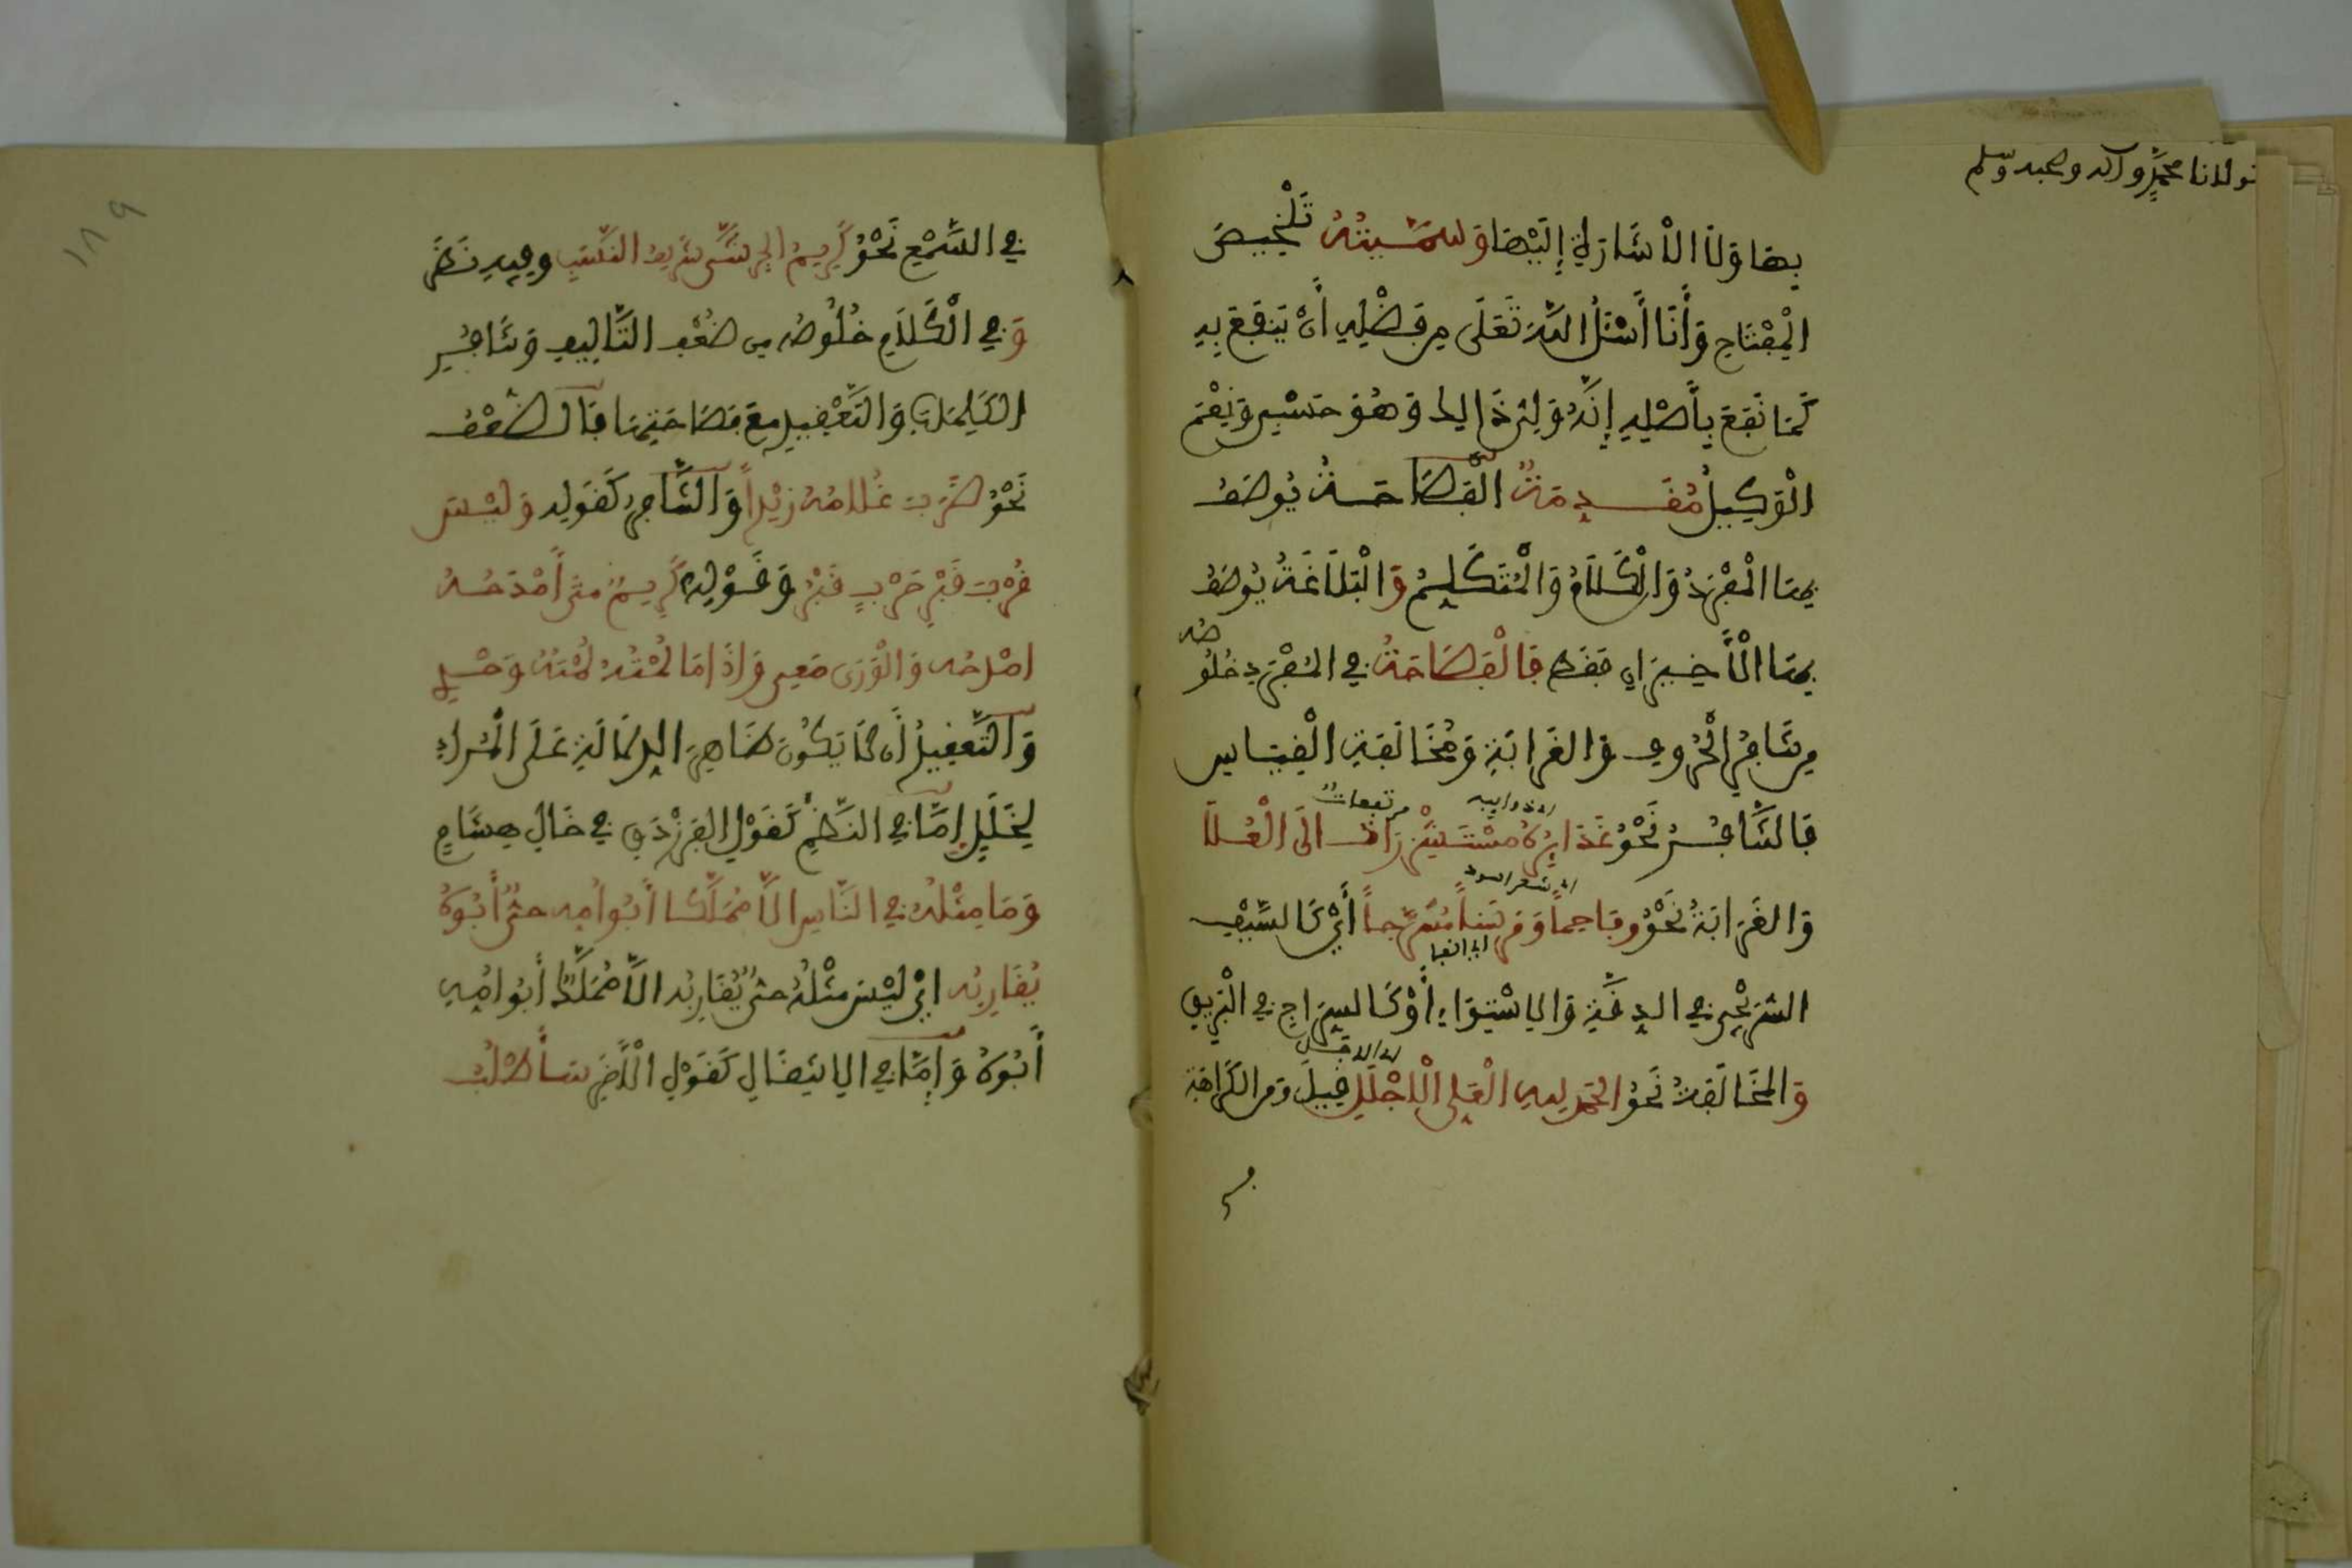 مولانا محمد وآله وصحبه وسلم
بها ولا الاشارة إليها وسميته تلخيص
المفتاح وأنا أسئل الله تعلى من فضله أن ينفع به
كما نفع بأصله إنه ولى ذالك وهو حسبى ونعم
الوكيل مقدمة الفصاحة يوصف
بها المفرد والكلام والمتكلم والبلاغة يوصف
بها الأخيران فقط فالفصاحة في المفرد خلوصه
من تنافر الحروف والغرابة ومخالفة القياس
فالتنافر نحو غدائره مستشزرات الى العلا
اى ذوايبه
مرتفعات
والغرابة نحو وفاحما ومرسنا مسرجا أي كالسيف
اى شعر اسود
اى انفا
السريجى في الدقة والاستواء أو كالسراج في البريق
والمخالفة نحو الحمد لله العلى الاجلل قيل ومن الكراهة
في السمع نحو كريم الجرشى شريف النسب وفيه نظر
وفي الكلام خلوصه من ضعف التاليف وتنافر
الكلمات والتعقيد مع فصاحتها فالضعف
نحو ضرب غلامه زيدا والتنافر كقوله وليس
قرب قبر حرب قبر وقوله كريم متى أمدحه
امدحه والورى معى واذا ما لمته لمته وحدى
والتعقيد أن لا يكون ظاهر الدلالة على المراد
لخلل إما في النظم كقول الفرزدق في خال هشام
وما مثله في الناس الا مملكا أبو أمه حى أبوه
يقاربه اى ليس مثله حى يقاربه الا مملكا أبو امه
أبوه وإما في الانتقال كقول الأخر سأطلب